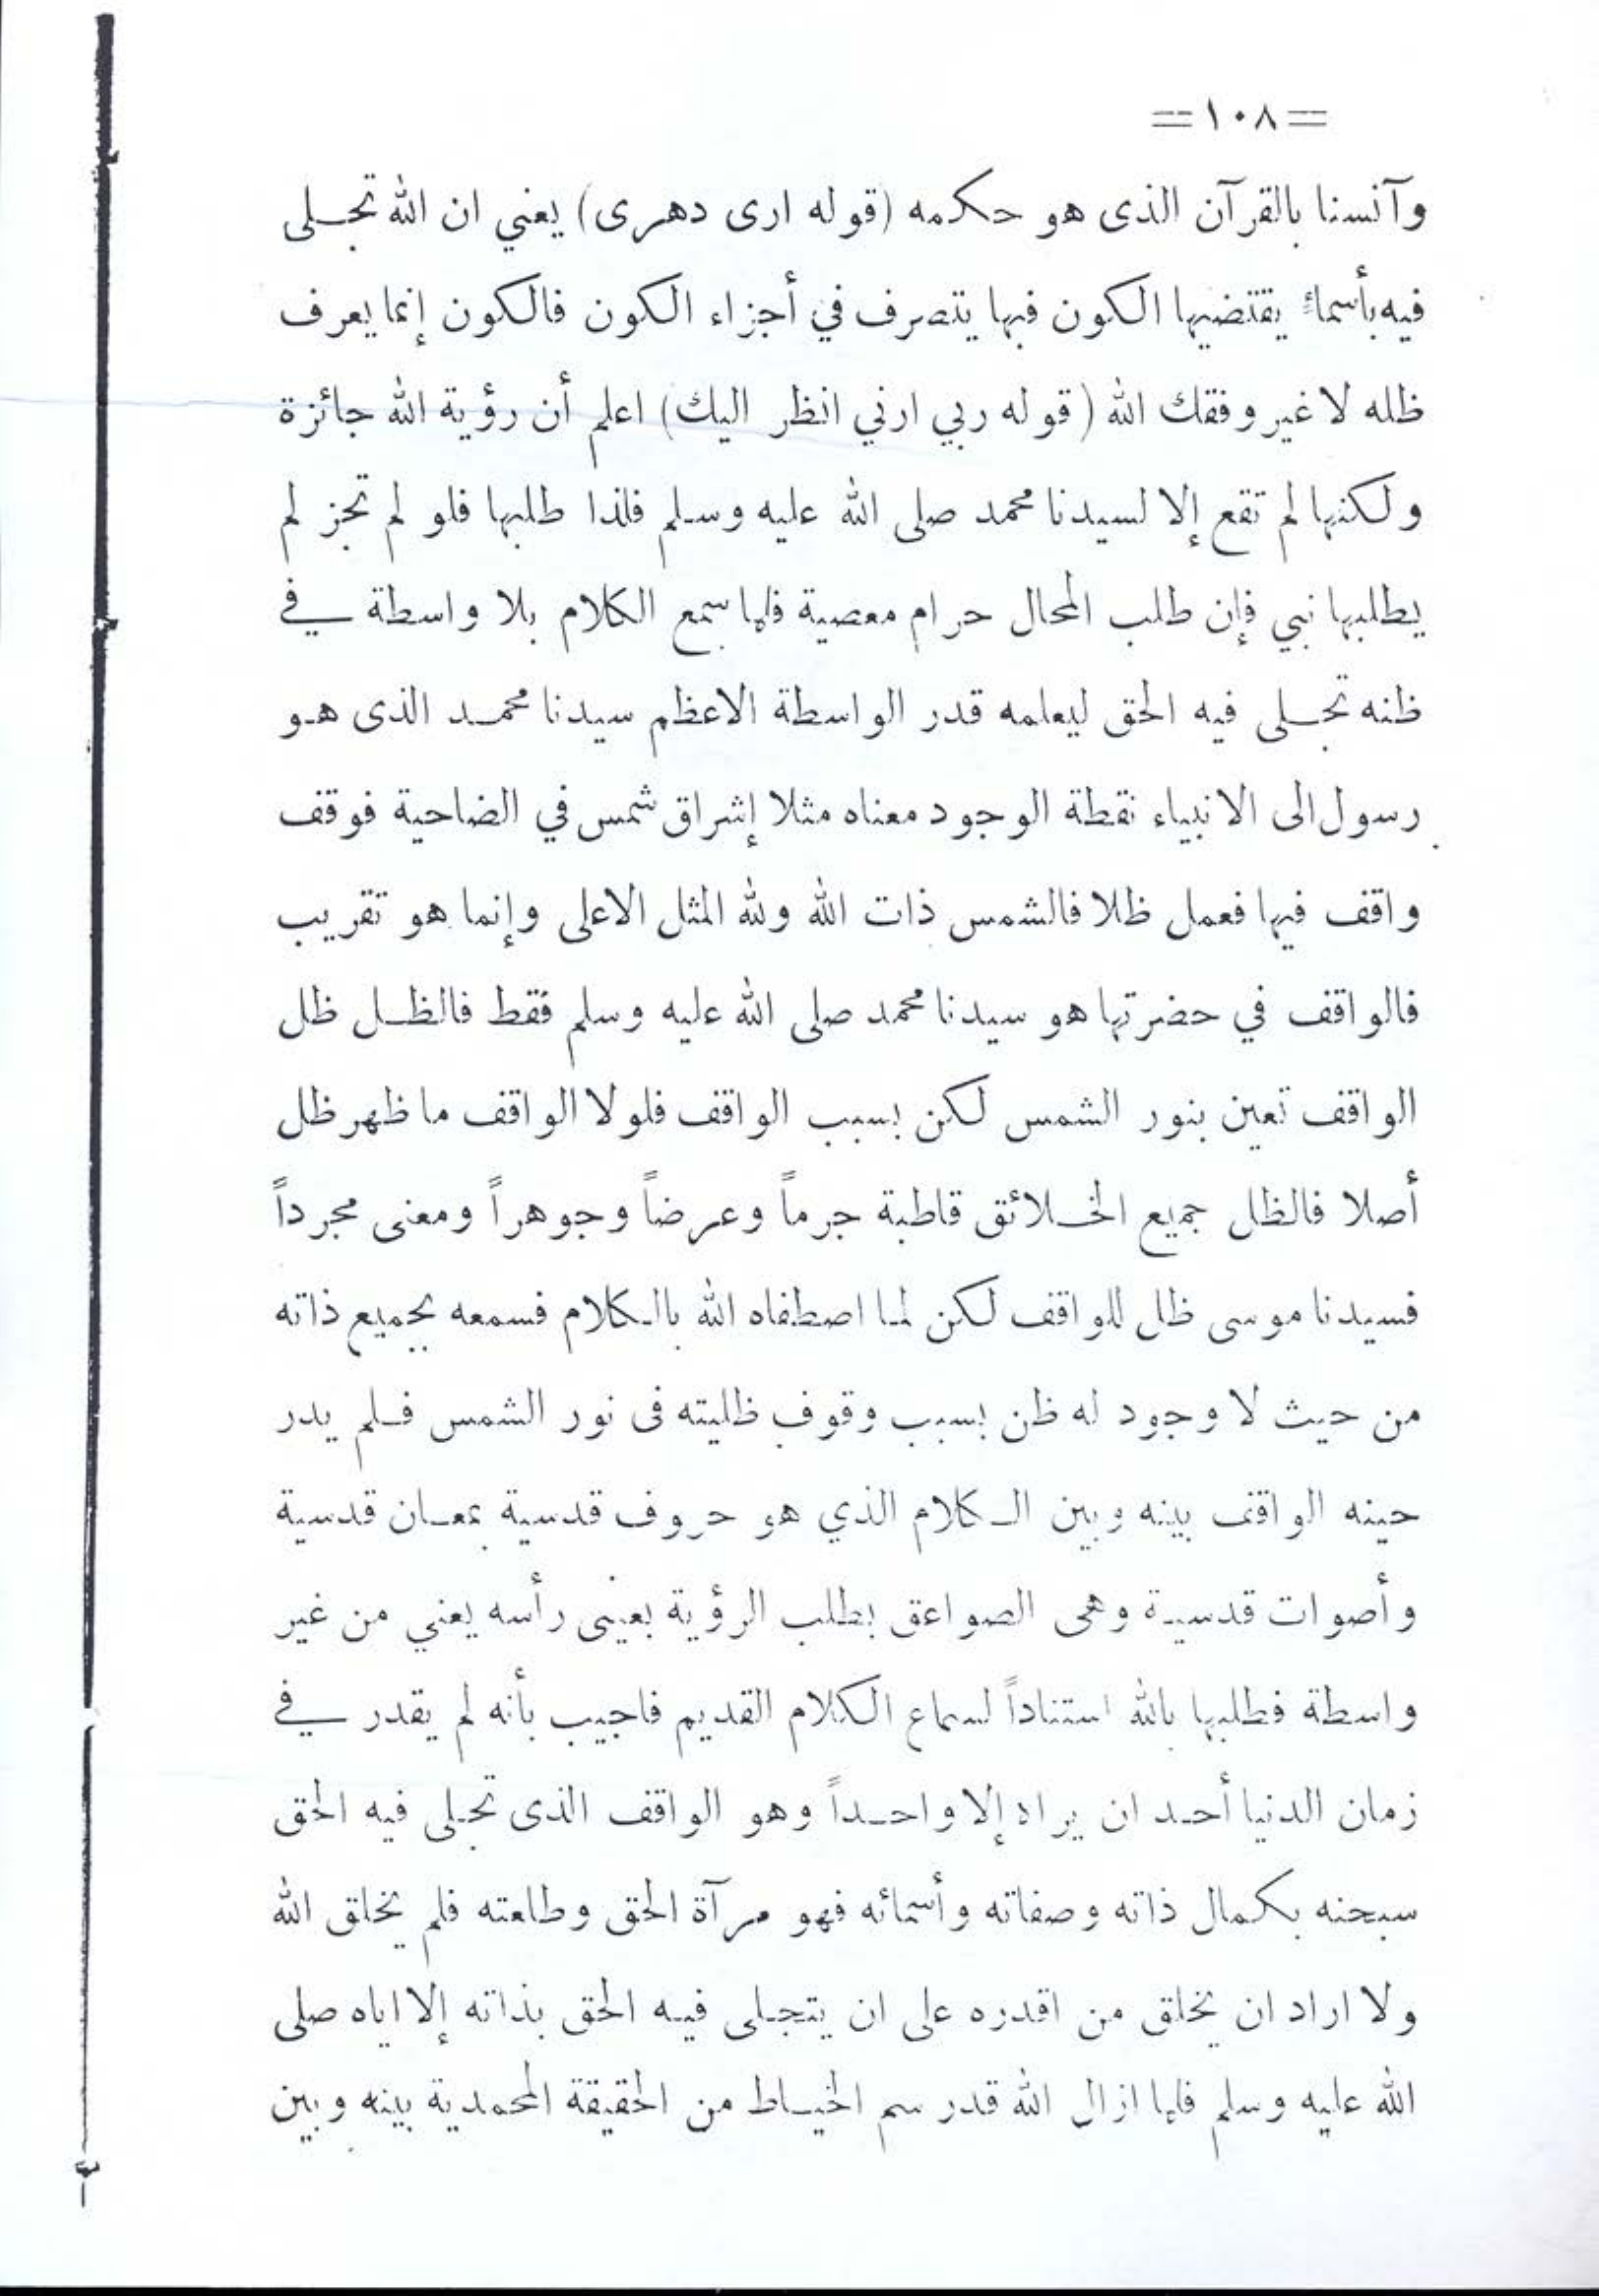 == ١٠٨ ==
وآنسنا بالقرآن الذى هو حكمه (قوله ارى دهرى) يعني ان الله تجلى
فيه بأسماء يقتضيها الكون فبها يتصرف في أجزاء الكون فالكون إنما يعرف
ظله لا غير وفقك الله (قوله ربي ارني انظر اليك) اعلم أن رؤية الله جائزة
ولكنها لم تقع إلا لسيدنا محمد صلى الله عليه وسلم فلذا طلبها فلو لم تجز لم
يطلبها نبي فإن طلب المحال حرام معصية فلما سمع الكلام بلا واسطة في
ظنه تجلى فيه الحق ليعلمه قدر الواسطة الاعظم سيدنا محمد الذى هو
رسول الى الانبياء نقطة الوجود معناه مثلا إشراق شمس في الضاحية فوقف
واقف فيها فعمل ظلا فالشمس ذات الله ولله المثل الاعلى وإنما هو تقريب
فالواقف في حضرتها هو سيدنا محمد صلى الله عليه وسلم فقط فالظل ظل
الواقف تعين بنور الشمس لكن بسبب الواقف فلولا الواقف ما ظهر ظل
أصلا فالظل جميع الخلائق قاطبة جرماً وعرضاً وجوهراً ومعنى مجرداً
فسيدنا موسى ظل للواقف لكن لما اصطفاه الله بالكلام فسمعه بجميع ذاته
من حيث لا وجود له ظن بسبب وقوف ظليته فى نور الشمس فلم يدر
حينه الواقف بينه وبين الكلام الذي هو حروف قدسية بمعان قدسية
وأصوات قدسية وهى الصواعق بطلب الرؤية بعينى رأسه يعني من غير
واسطة فطلبها بالله استناداً لسماع الكلام القديم فاجيب بأنه لم يقدر في
زمان الدنيا أحد ان يراه إلا واحداً وهو الواقف الذى تجلى فيه الحق
سبحنه بكمال ذاته وصفاته وأسمائه فهو مرآة الحق وطلعته فلم يخلق الله
ولا اراد ان يخلق من اقدره على ان يتجلى فيه الحق بذاته إلا اياه صلى
الله عليه وسلم فلما ازال الله قدر سم الخياط من الحقيقة المحمدية بينه وبين